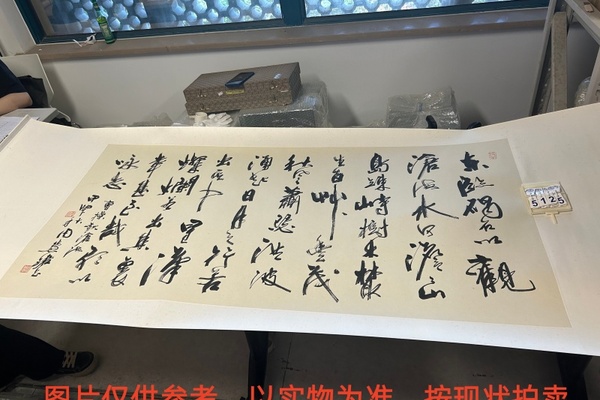 东临碣石以觀
滄海水何澹澹山
島竦峙樹木叢
生百艸豐茂
秋風蕭瑟洪波
湧起日月之行若
出其中星漢
燦爛若出其里
幸甚至哉歌以
咏志
5125
图片仅供参考，以实物为准，按现状拍卖